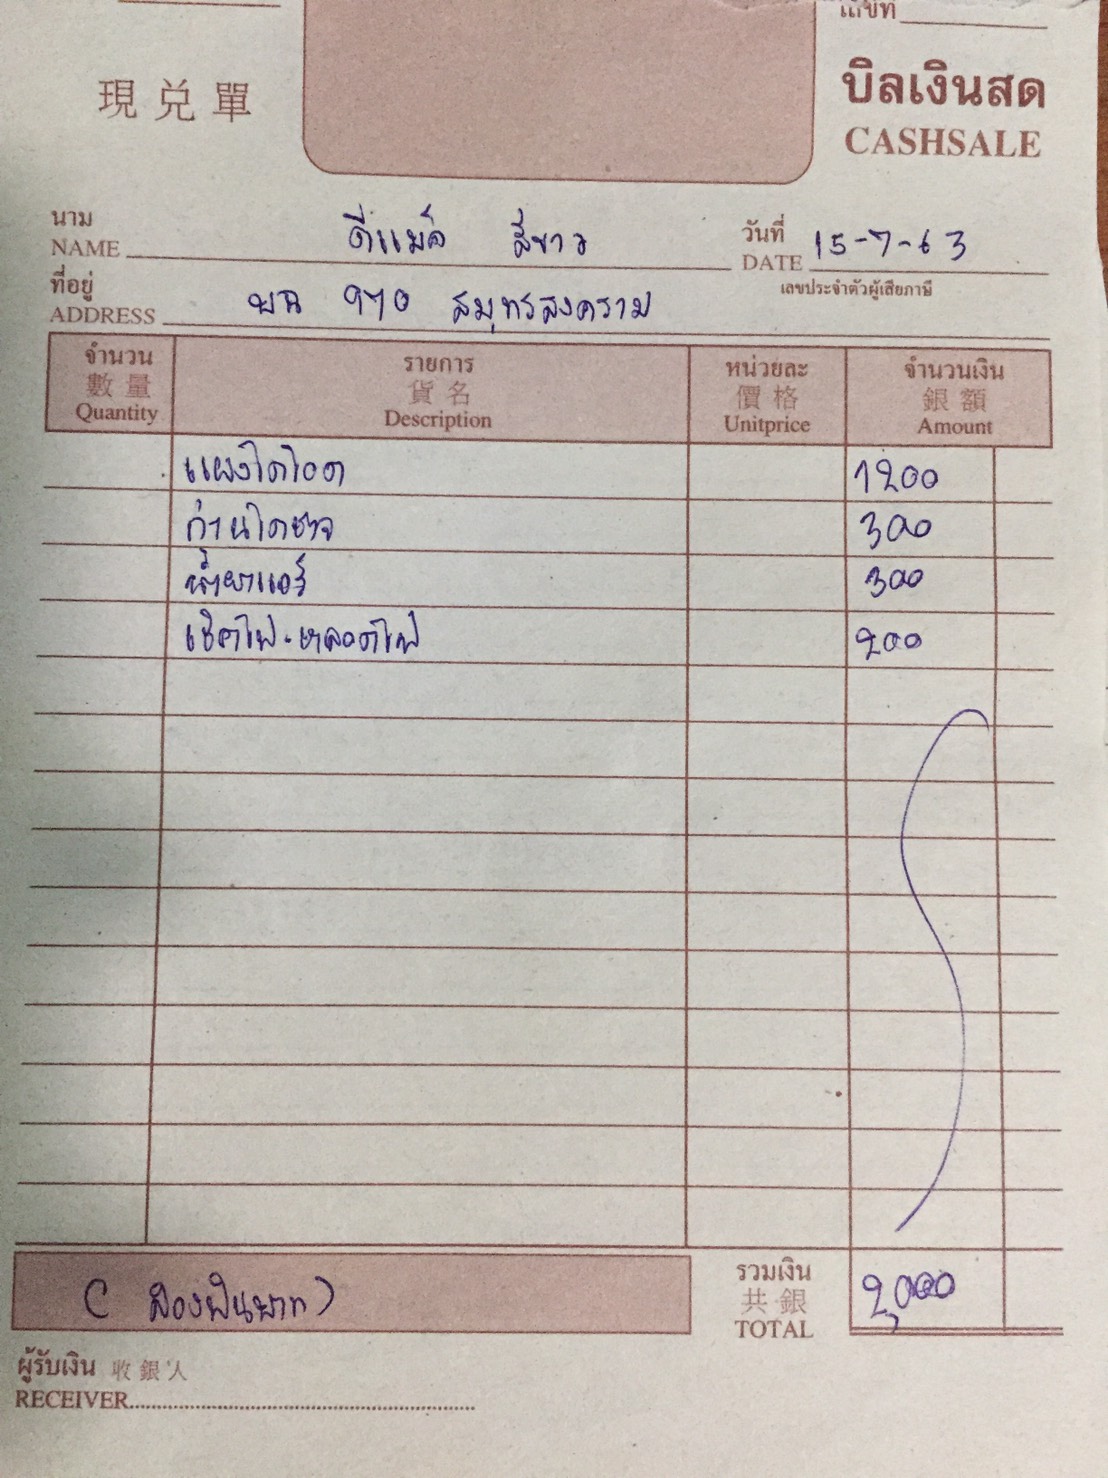 เลขที่
現兌單
บิลเงินสด
CASHSALE
นาม ดีแม็ค สีขาว วันที่ 15-7-63
NAME DATE
ที่อยู่ เลขประจำตัวผู้เสียภาษี
ADDRESS บฉ 970 สมุทรสงคราม
จำนวน รายการ หน่วยละ จำนวนเงิน
數量 貨名 價格 銀額
Quantity Description Unitprice Amount
แผงไดโอด 1200
ก้านไดชาจ 300
น้ำยาแอร์ 300
เช็คไฟ-หลอดไฟ 200
(สองพันบาท) รวมเงิน 2,000
共銀
TOTAL
ผู้รับเงิน 收銀人
RECEIVER